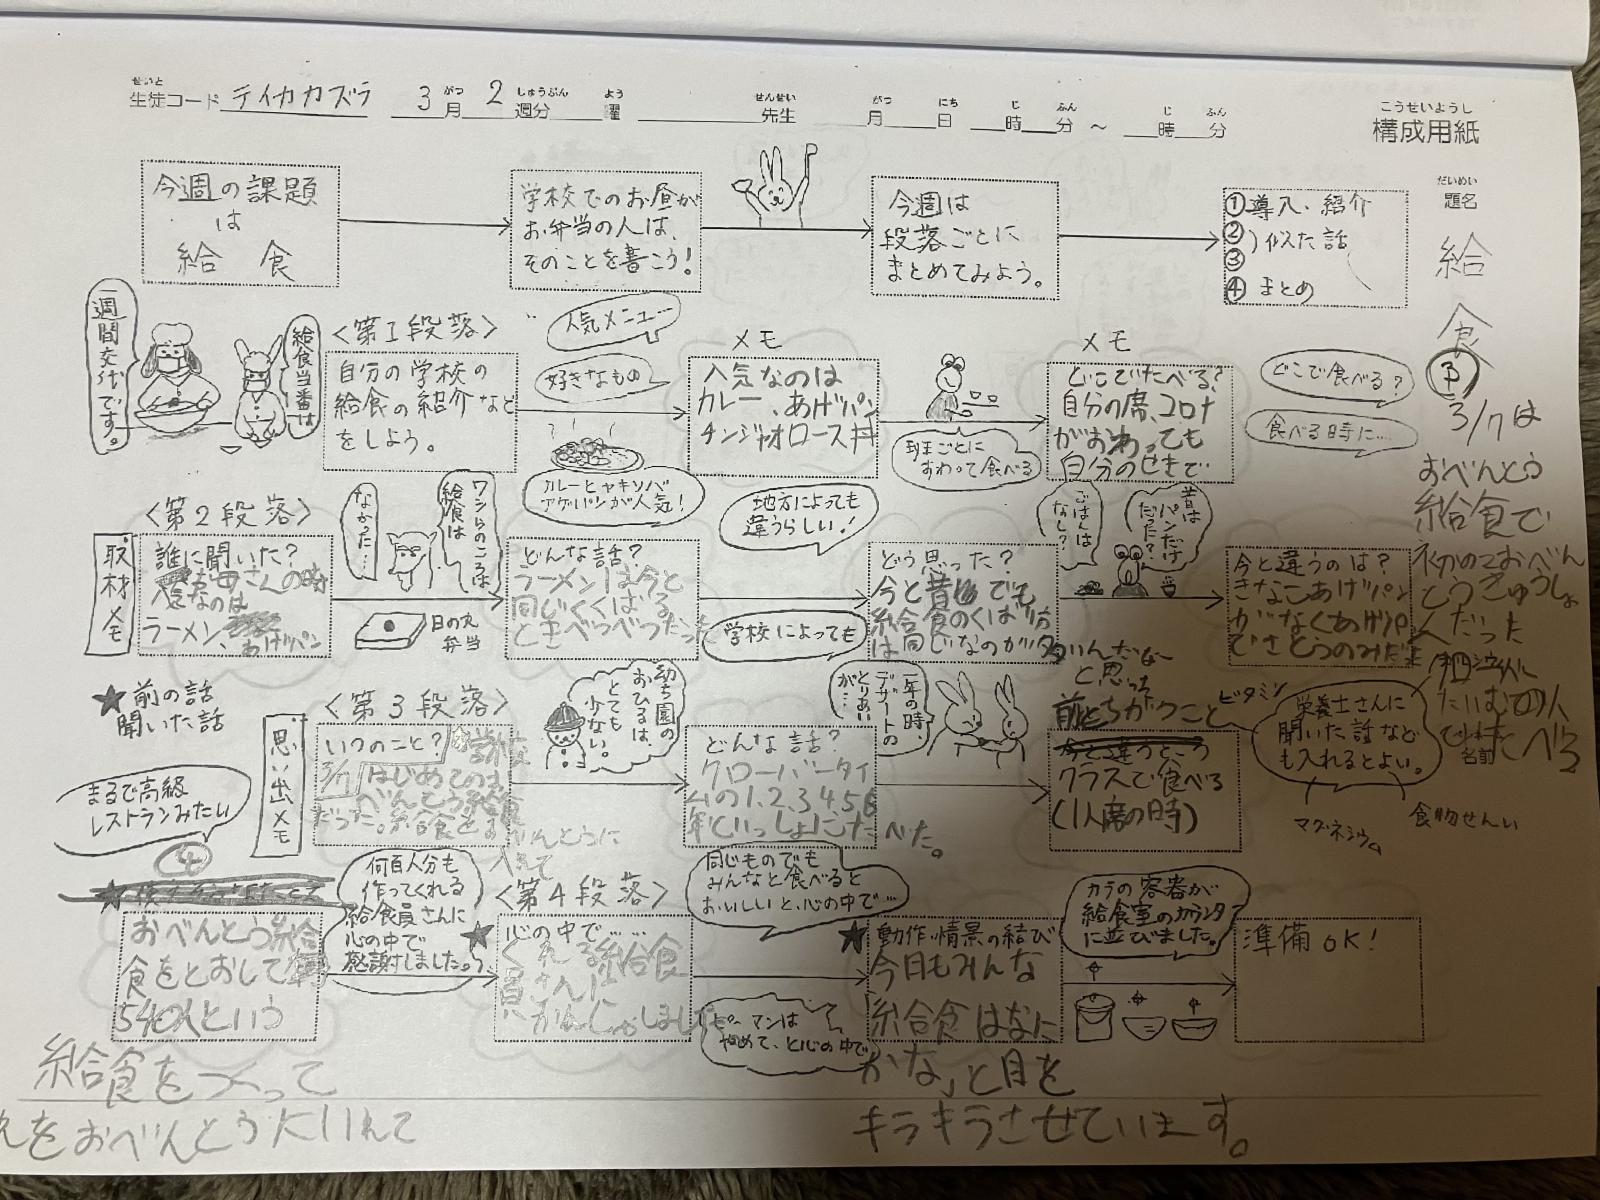 生徒コード テイカカズラ 3月 2週分 曜 先生 月 日 時 分 ～ 時 分
せいと がつ しゅうぶん よう せんせい がつ にち じ ふん じ ふん
こうせいようし
構成用紙
だいめい
題名
給
食
今週の課題
は
給 食
学校でのお昼が
お弁当の人は、
そのことを書こう!
今週は
段落ごとに
まとめてみよう。
①導入、紹介
②)似た話
③
④ まとめ
一週間交代です。
給食当番は
<第1段落>
自分の学校の
給食の紹介など
をしよう。
人気メニュー…
好きなもの
カレーとヤキソバ
アゲパンが人気!
メモ
人気なのは
カレー、あげパン
チンジャオロース丼
班ごとに
すわって食べる
メモ
どこでたべる?
自分の席、コロナ
がおわっても
自分のせきで
どこで食べる?
食べる時に…
3/7は
おべんとう
給食で
初めてのおべん
とうきゅうしょ
くだった
<第2段落>
取材メモ
誰に聞いた?
お母さんの時
人気なのは
ラーメン、あげパン
なかった…
ワシらのころは
給食は
日の丸
弁当
どんな話?
ラーメンは今と
同じくくばる
ときべつべつだった
地方によっても
違うらしい!
学校によっても
どう思った?
今と昔でも
給食のくばり方
は同じなのが多
いんだなー
と思った
ごはんは
なし?
昔は
パンだけ
だった?
今と違うのは?
きなこあげパン
がなくあげパ
でさとうのみだ
★前の話
聞いた話
思い出メモ
<第3段落>
いつのこと?
3/7
はじめてのお
べんとう給食
だった。給食をお
べんとうに
入れて
幼ち園の
おひるは、
とても
少ない。
どんな話?
クローバータイ
ムの1.2.3.4.5.6
年といっしょにたべた。
一年の時、
デザートの
とりあい
が…
前とちがうこと
クラスで食べる
(1人席の時)
栄養士さんに
聞いた話など
も入れるとよい。
ビタミン
マグネシウム
食物せんい
名前
まるで高級
レストランみたい
おべんとう給
食をとおして
540人という
給食をつくって
れをおべんとうにいれて
何百人分も
作ってくれる
給食員さんに
心の中で
感謝しました。
<第4段落>
★心の中で……
くれる給食
員さんに
かんしゃしました
同じものでも
みんなと食べると
おいしいと、心の中で…
ピーマンは
やめて、と心の中で
★動作、情景の結び
今日もみんな
給食はなに
かな」と目を
キラキラさせています。
カラの容器が
給食室のカウンター
に並びました。
準備OK!